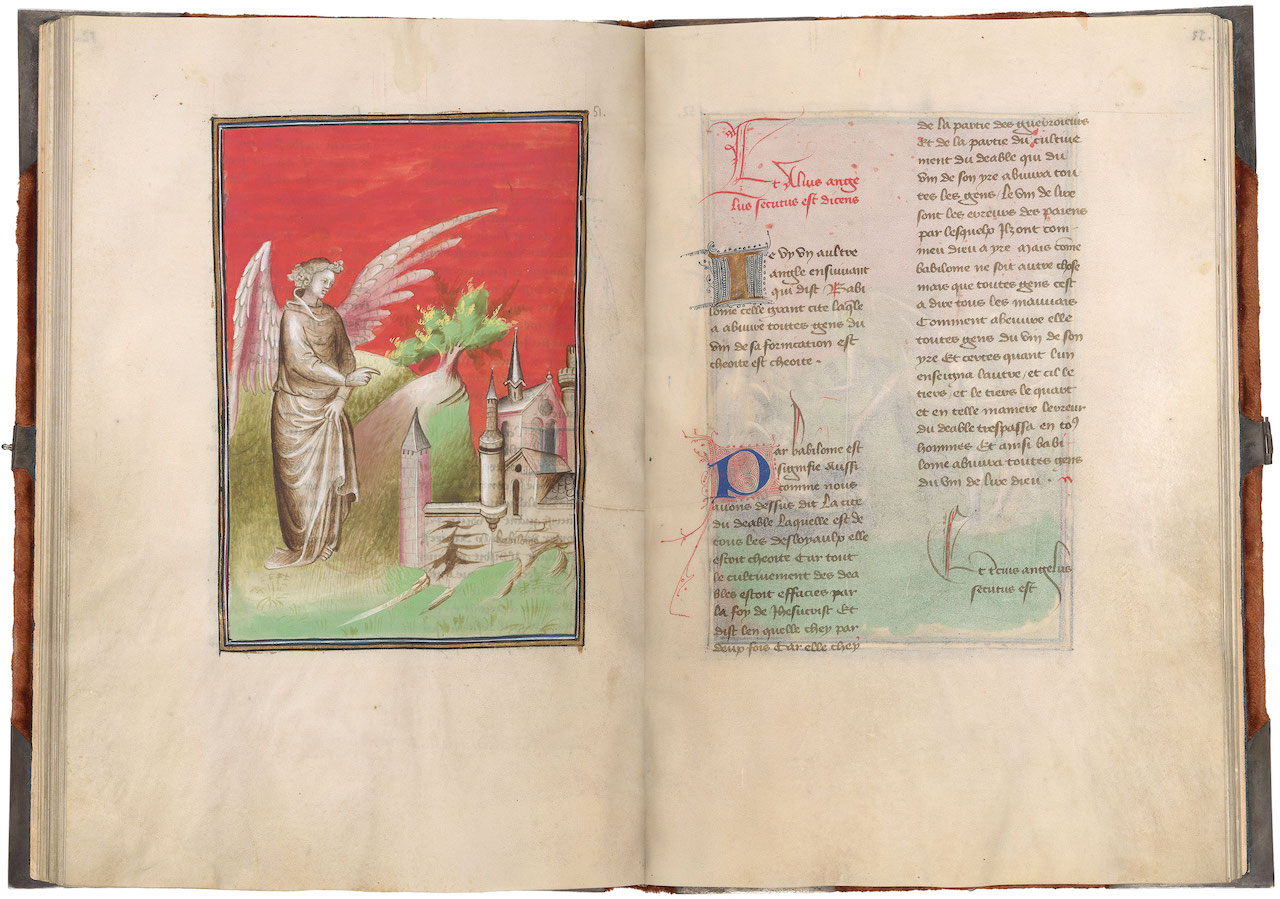 51.
52.
Et Alius ange
lus secutus est dicens
Ie vy vn aultre
angle ensuiuant
qui dist Babi
lonne celle grant cite laqle
a abuvre toutes gens du
vin de sa fornication est
cheoite est cheoite.
Par babilonne est
signifie aussi
comme nous
auons dessus dit La cite
du deable Laquelle est de
tous les desloyaulx elle
estoit cheoite Car tout
le cultiuement des dea
bles estoit effacies par
la foy de Jhesucrist Et
dist len quelle chey par
deux fois Car elle chey
de la partie des guerroieurs
Et de la partie du cultiue
ment du deable qui du
vin de son yre abuvra tou
tes les gens / Le vin de lire
sont les erreurs des paiens
par lesquelx Ilz ont com
meu dieu a yre Mais cõme
babilonne ne soit autre chose
mais que toutes gens cest
a dire tous les mauuais
Comment abeuvre elle
toutes gens du vin de son
yre Et certes quant lun
enseigna lautre / et cil le
tiers / et le tiers le quart
et en telle maniere lerreur
du deable trespassa en to9
hommes Et ainsi babi
lonne abuvra toutes gens
du vin de lire dieu.
Et tercius angelus
secutus est